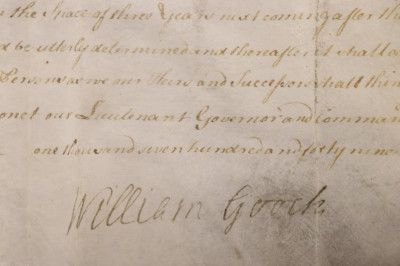 the Space of three Years next coming after the
be utterly determined and thereafter it shall a
Persons as we our Heirs and Successors shall thin
onet our Lieutenant Governor and Comman
one thousand seven hundred and forty nine
William Gooch